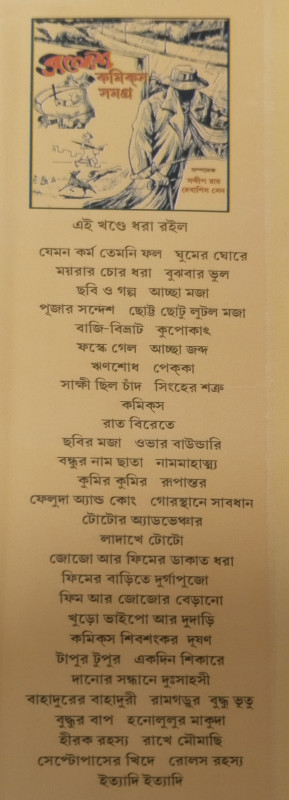 সন্দেশ
কমিকস
সমগ্র
সম্পাদক
সন্দীপ রায়
দেবাশিস সেন
এই খণ্ডে ধরা রইল
যেমন কর্ম তেমনি ফল ঘুমের ঘোরে
ময়রার চোর ধরা বুঝবার ভুল
ছবি ও গল্প আচ্ছা মজা
পূজার সন্দেশ ছোট্ট ছোটু লুটল মজা
বাজি-বিভ্রাট কুপোকাৎ
ফস্কে গেল আচ্ছা জব্দ
ঋণশোধ পেক্‌কা
সাক্ষী ছিল চাঁদ সিংহের শত্রু
কমিক্‌স
রাত বিরেতে
ছবির মজা ওভার বাউন্ডারি
বন্ধুর নাম ছাতা নামমাহাত্ম্য
কুমির কুমির রূপান্তর
ফেলুদা অ্যান্ড কোং গোরস্থানে সাবধান
টোটোর অ্যাডভেঞ্চার
লাদাখে টোটো
জোজো আর ফিমের ডাকাত ধরা
ফিমের বাড়িতে দুর্গাপুজো
ফিম আর জোজোর বেড়ানো
খুড়ো ভাইপো আর দুদাড়ি
কমিক্‌স শিবশংকর দূষণ
টাপুর টুপুর একদিন শিকারে
দানোর সন্ধানে দুঃসাহসী
বাহাদুরের বাহাদুরী রামগড়ুর বুদ্ধু ভুতু
বুদ্ধুর বাপ হনোলুলুর মাকুদা
হীরক রহস্য রাখে মৌমাছি
সেপ্টোপাসের খিদে রোলস রহস্য
ইত্যাদি ইত্যাদি